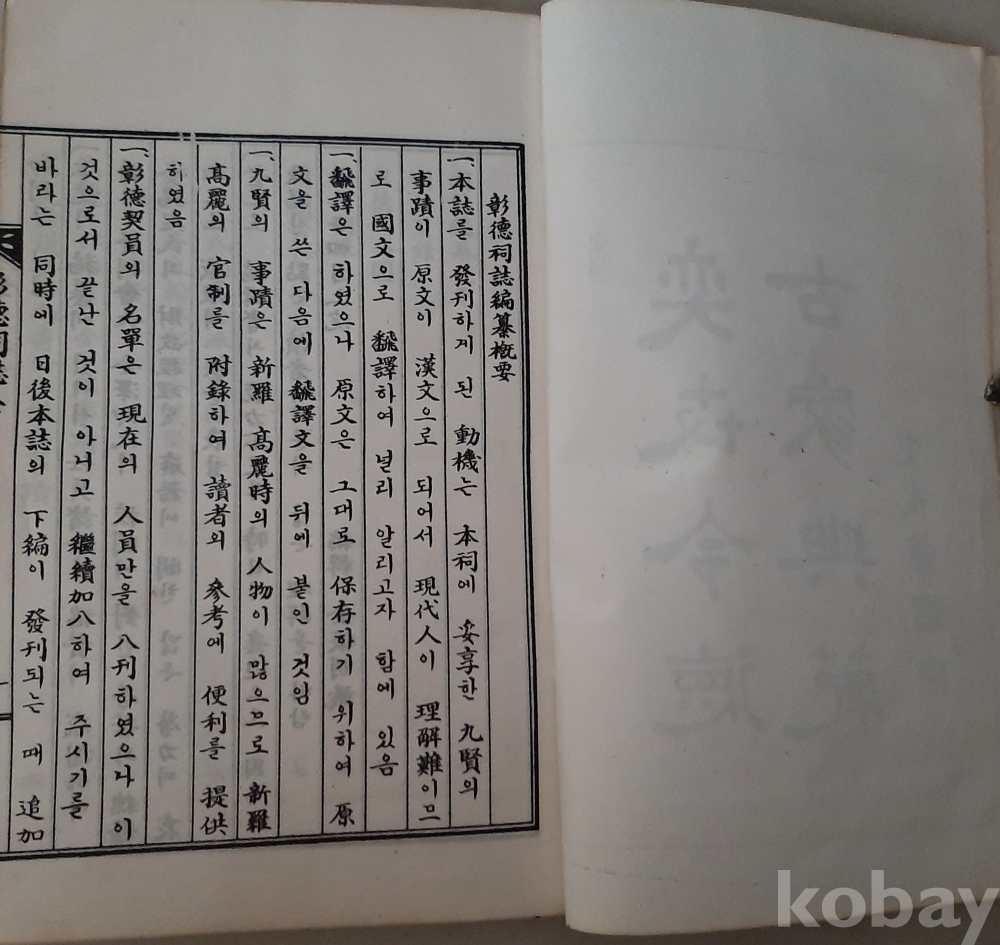 彰德祠誌編纂槪要
一、本誌를 發刊하게 된 動機는 本祠에 妥享한 九賢의
事蹟이 原文이 漢文으로 되어서 現代人이 理解難이므
로 國文으로 飜譯하여 널리 알리고자 함에 있음
一、飜譯은 하였으나 原文은 그대로 保存하기 위하여 原
文을 쓴 다음에 飜譯文을 뒤에 붙인 것임
一、九賢의 事蹟은 新羅 高麗時의 人物이 많으므로 新羅
高麗의 官制를 附錄하여 讀者의 參考에 便利를 提供
하였음
一、彰德契員의 名單은 現在의 人員만을 入刊하였으나 이
것으로서 끝난 것이 아니고 繼續加入하여 주시기를
바라는 同時에 日後本誌의 下編이 發刊되는 때 追加
彰德祠誌
kobay